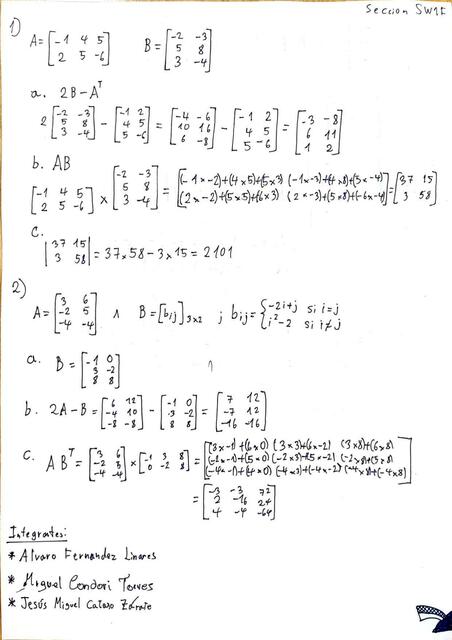 Seccion SW1E
1)
A=[-1 4 5; 2 5 -6] B=[-2 -3; 5 8; 3 -4]
a. 2B-Aᵀ
2[-2 -3; 5 8; 3 -4] - [-1 2; 4 5; 5 -6] = [-4 -6; 10 16; 6 -8] - [-1 2; 4 5; 5 -6] = [-3 -8; 6 11; 1 2]
b. AB
[-1 4 5; 2 5 -6] × [-2 -3; 5 8; 3 -4] = [(-1×-2)+(4×5)+(5×3) (-1×-3)+(4×8)+(5×-4); (2×-2)+(5×5)+(6×3) (2×-3)+(5×8)+(-6×-4)] = [37 15; 3 58]
c.
|37 15; 3 58| = 37×58-3×15 = 2101
2)
A=[3 6; -2 5; -4 -4] ∧ B=[bij]3×2 ; bij={-2i+j si i=j; i²-2 si i≠j
a. B=[-1 0; 3 -2; 8 8]
b. 2A-B=[6 12; -4 10; -8 -8] - [-1 0; 3 -2; 8 8] = [7 12; -7 12; -16 -16]
c. ABᵀ=[3 6; -2 5; -4 -4] × [-1 3 8; 0 -2 8] = [(3×-1)+(6×0) (3×3)+(6×-2) (3×8)+(6×8); (-2×-1)+(5×0) (-2×3)+(5×-2) (-2×8)+(5×8); (-4×-1)+(-4×0) (-4×3)+(-4×-2) (-4×8)+(-4×8)]
= [-3 -3 72; 2 -16 24; 4 -4 -64]
Integrantes:
* Alvaro Fernandez Linares
* Miguel Condori Torres
* Jesús Miguel Zárate